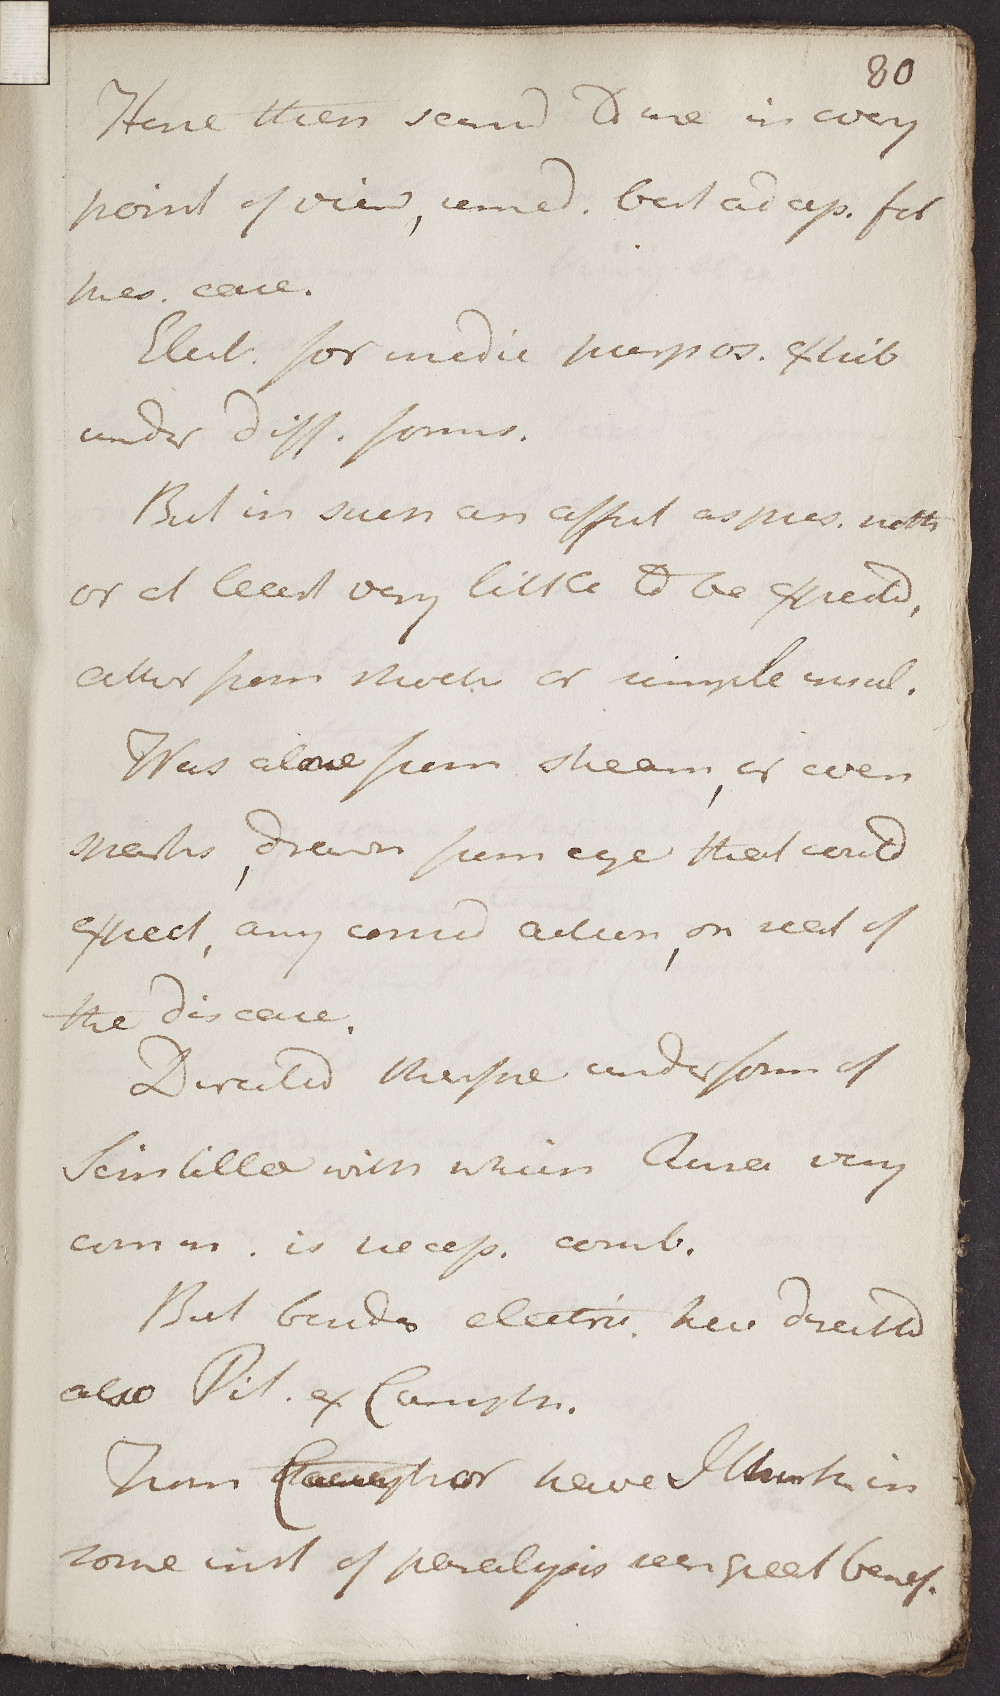 80
Here then seemd to me in every
point of view, remed. best adap. for
pres. case.
Elect. for medic purpos. exhib
under diff. forms.
But in such an affect as pres. noth
or at least very little to be expectd,
either from shock or simple insul.
Was alone from stream, or even
sparks, drawn from eye that could
expect, any consid action, on seat of
the disease.
Directed therfore under form of
Scintillæ with which Aura very
comm. is necess. comb.
But besides electric. have directd
also Pil. ex Camph.
From Camphor have I think in
some inst of paralysis seen great benef.